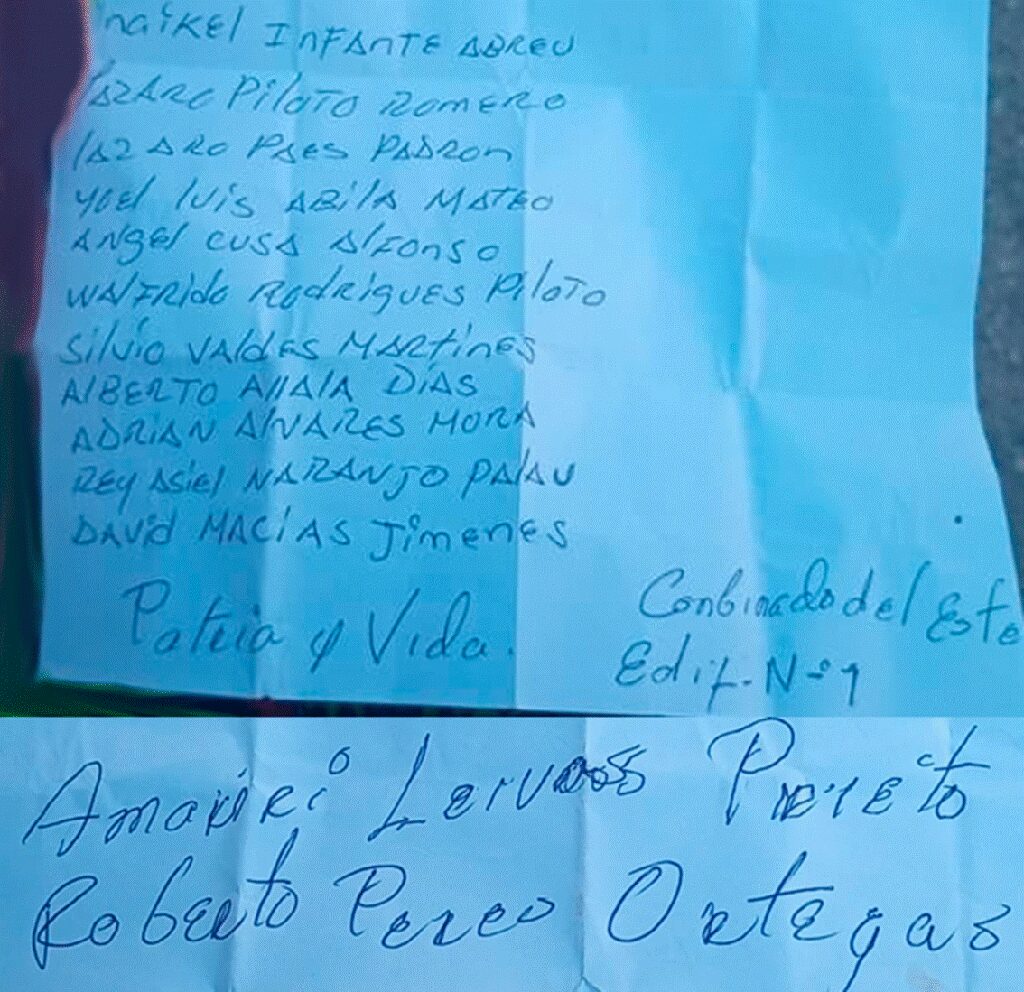 naikel INFANTE ABREU
lAZARO PilOTO ROMERO
lAZARO PAES PADRON
YOEl luis ABilA MATEO
ANgEl CUSA AlFONSO
WAlFRido RodRigUES PiloTO
Silvio VAldES MARTinES
AlBERTO AllAlA DÍAS
ADRIAN AlVARES MORA
REY ASiEl NARANJO PAlAU
DAVid MACÍAS JimENES
Patria y Vida.
Conbinado del Este
Edif. Nº 1
Prieto
Roberto Perez Ortegas